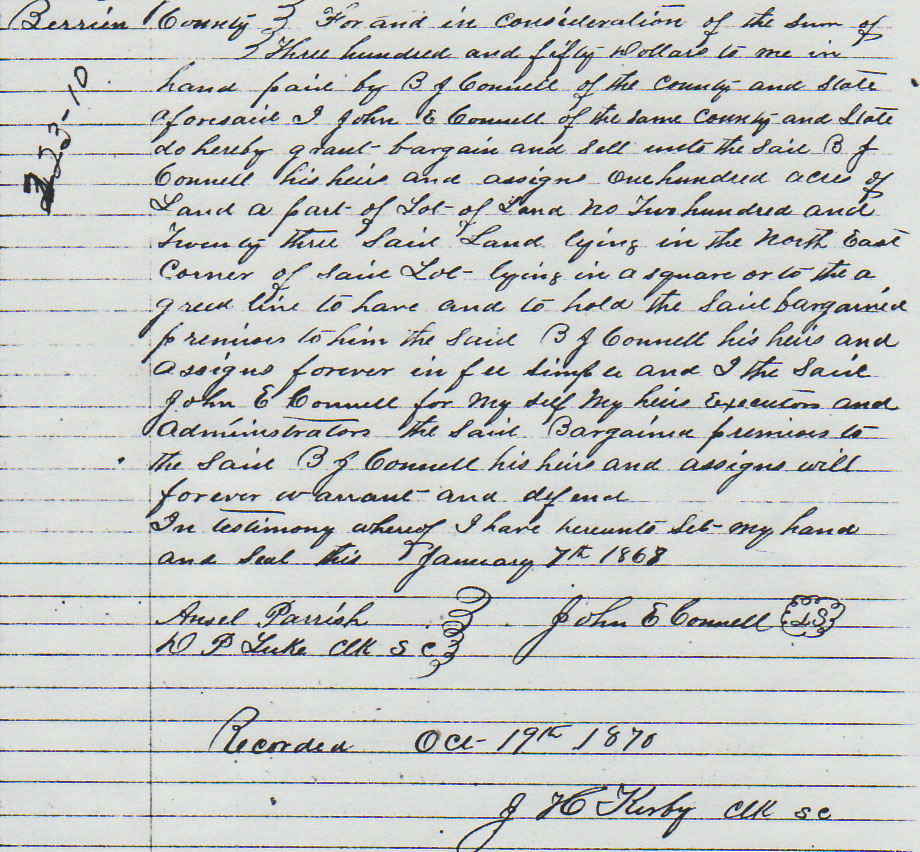 Berrien County } For and in consideration of the sum of
} Three hundred and fifty Dollars to me in
hand paid by B J Connell of the County and State
aforesaid I John E Connell of the same County and State
do hereby grant bargain and sell unto the said B J
Connell his heirs and assigns One hundred acres of
Land a part of Lot of Land No Two hundred and
Twenty three Said Land lying in the North East
Corner of said Lot lying in a square or to the a
greed line to have and to hold the said bargained
premises to him the said B J Connell his heirs and
assigns forever in fee simple and I the Said
John E Connell for My self My heirs Executors and
administrators the said Bargained premises to
the said B J Connell his heirs and assigns will
forever warrant and defend
In testimony whereof I have hereunto Set my hand
and Seal this January 7th 1868
Ansel Parrish } John E Connell LS
W P Luke Clk S C }
Recorded Oct 19th 1870
J H Kirby Clk S C
223-10